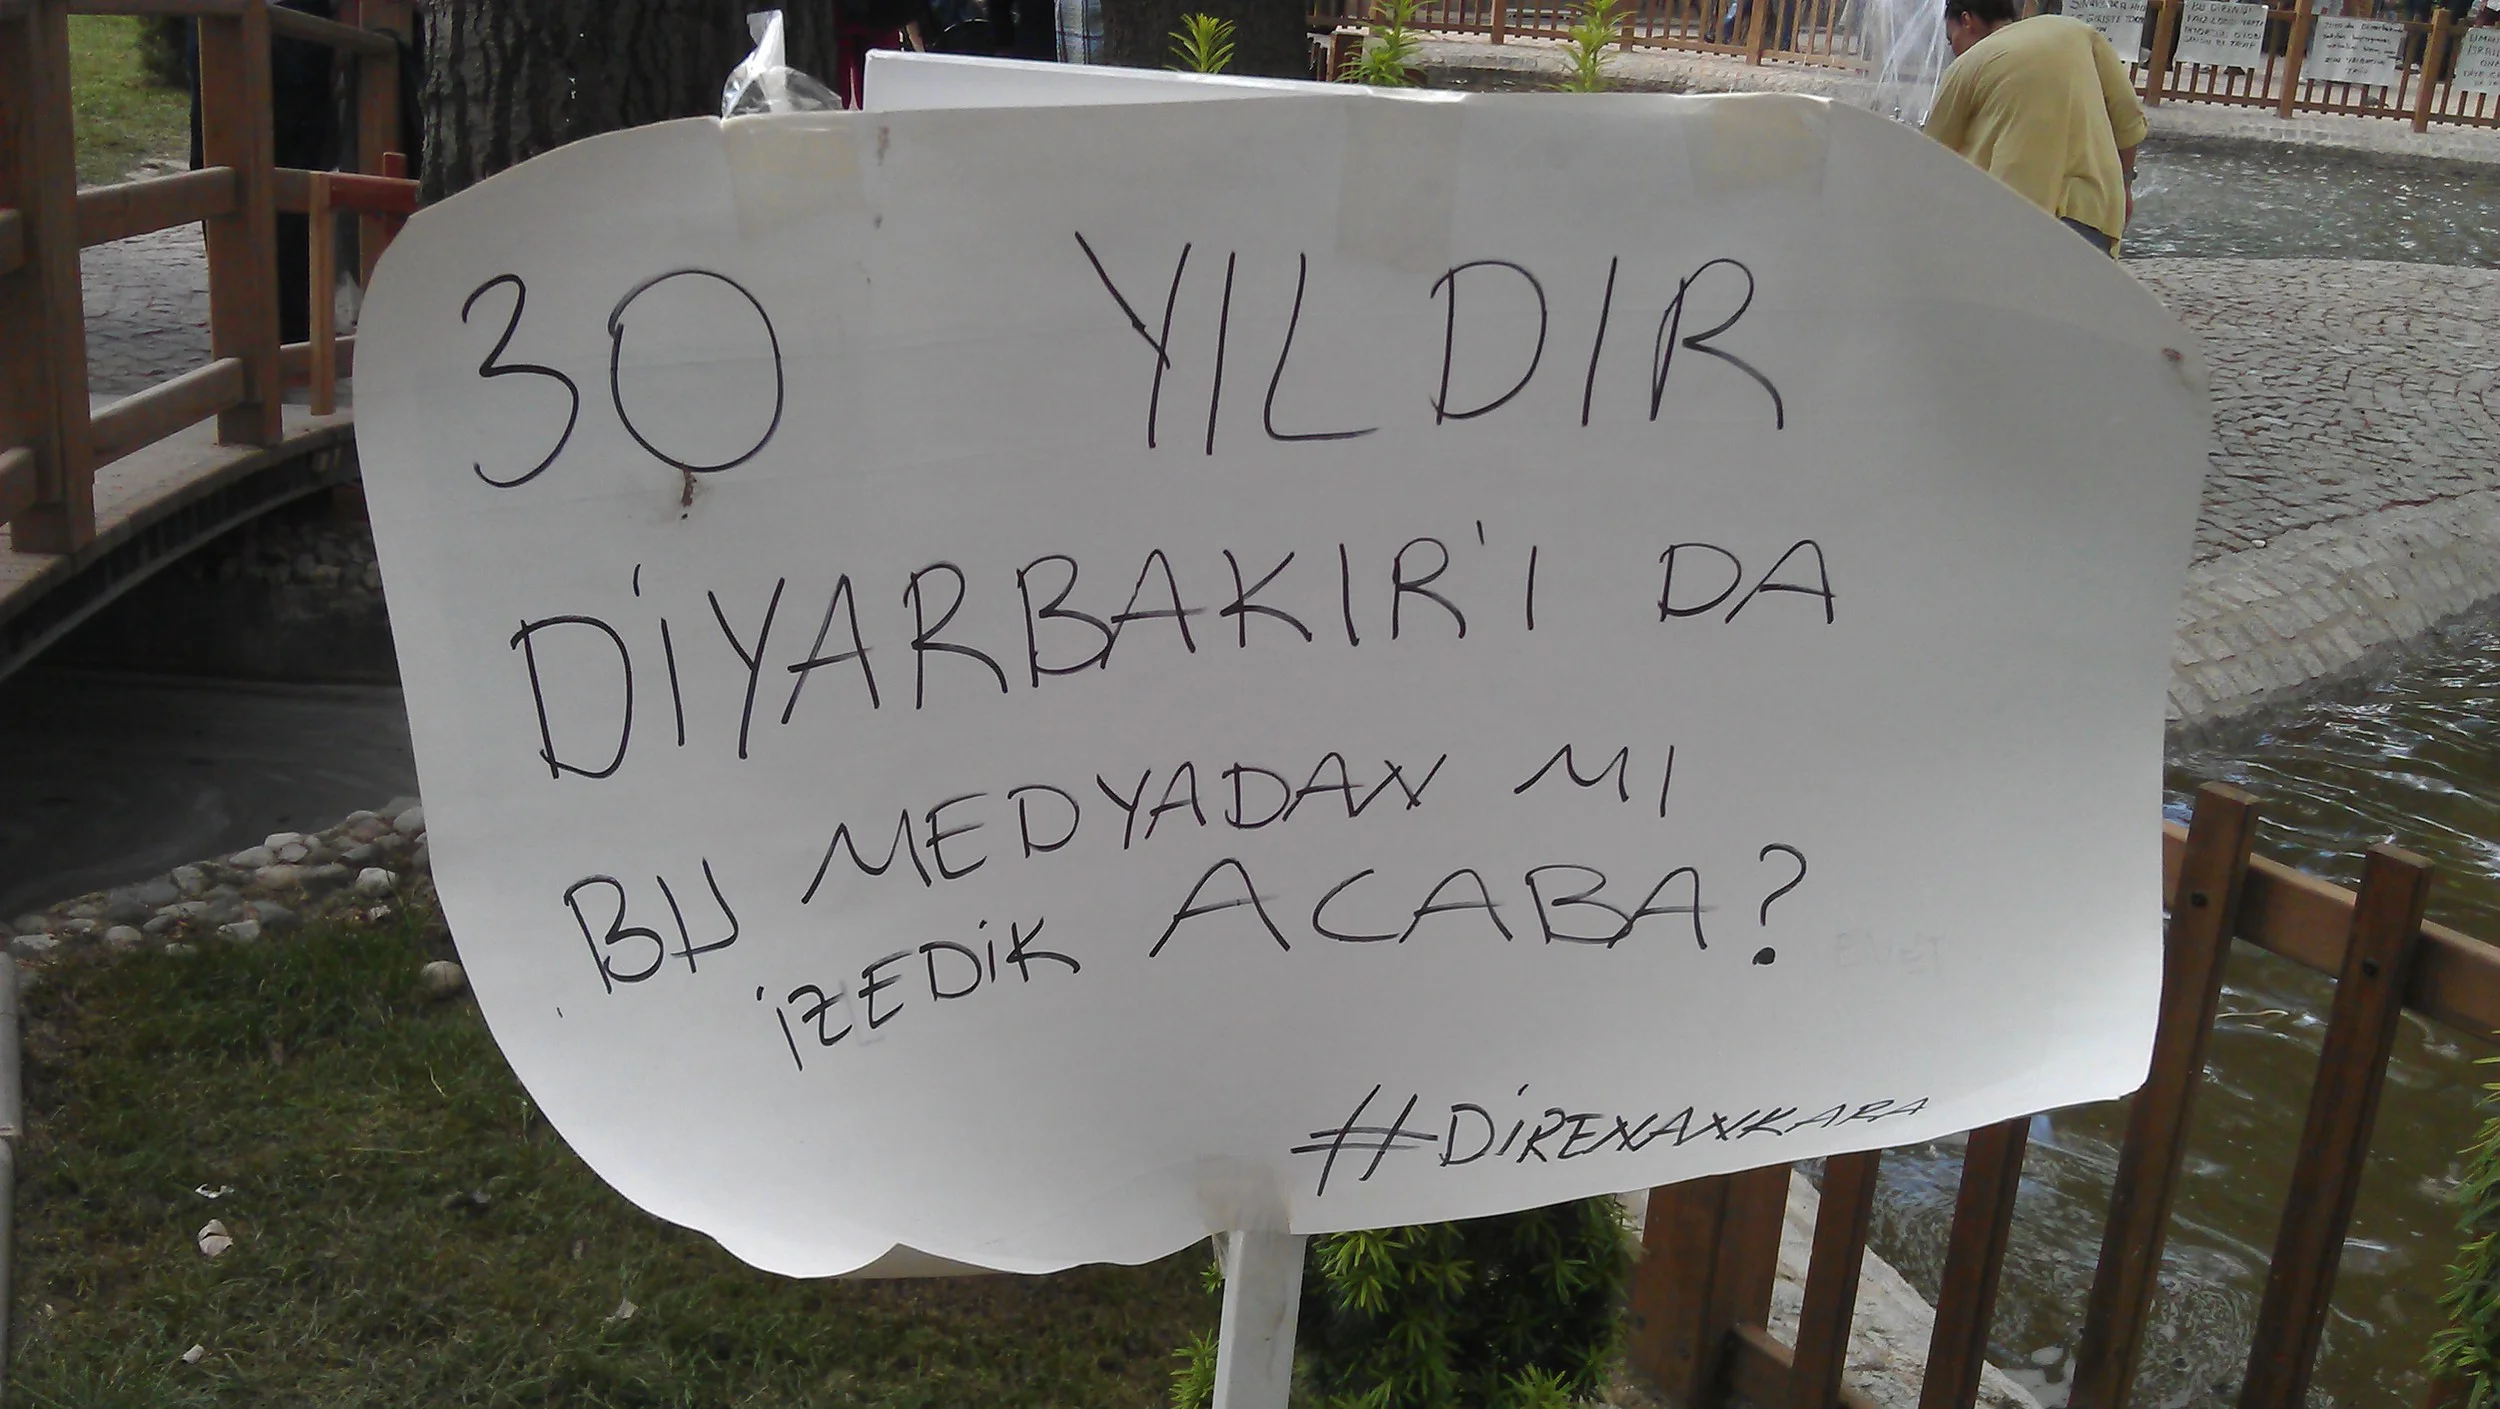 30 YILDIR
DİYARBAKIR'I DA
BU MEDYADAN MI
İZEDİK ACABA?
#DİRENANKARA